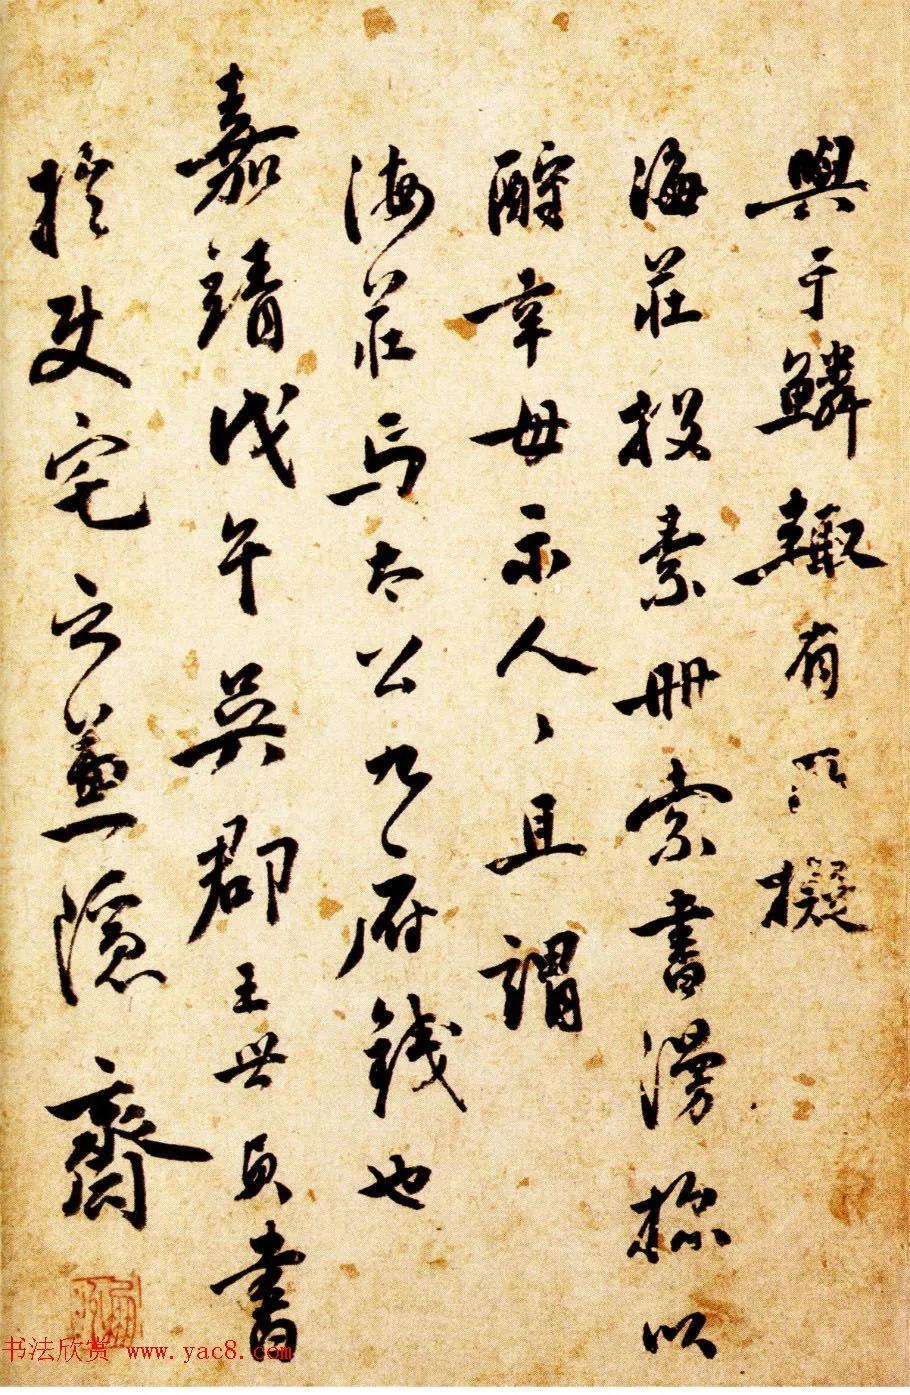 與于鱗輙有所擬
海莊投素册索書漫摽以
酧幸毋示人人且謂
海莊馬太公九府錢也
嘉靖戊午吳郡王世貞書
於吏宅之兼隱齋
书法欣赏 www.yac8.com